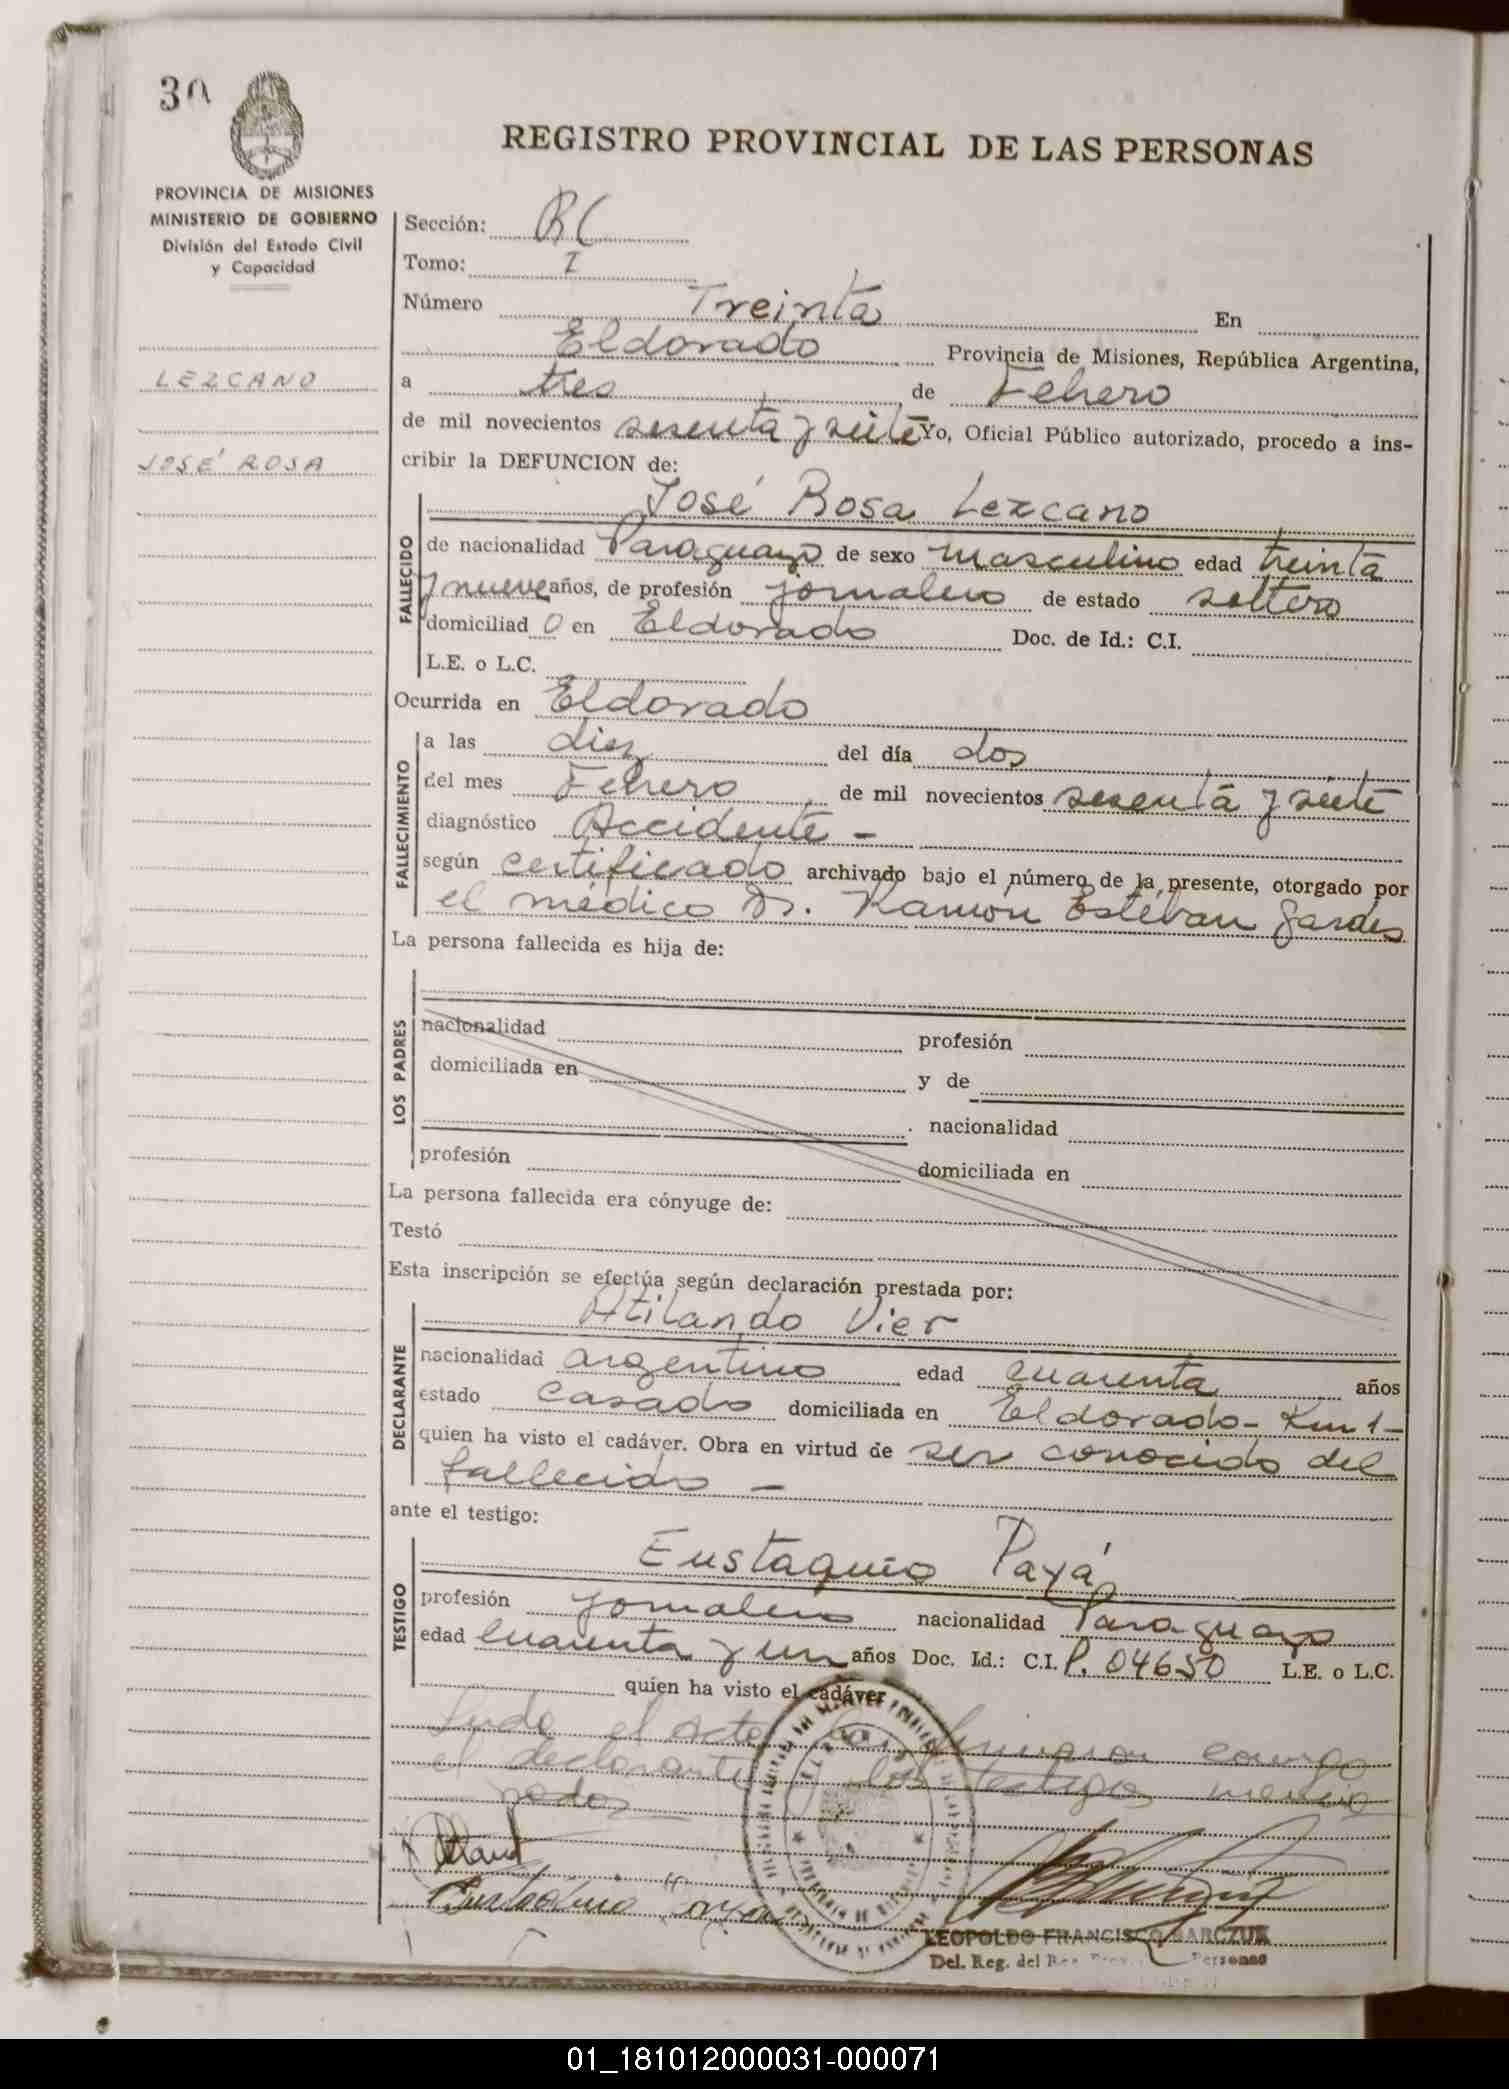 30
PROVINCIA DE MISIONES
MINISTERIO DE GOBIERNO
División del Estado Civil
y Capacidad
LEZCANO
JOSÉ ROSA
REGISTRO PROVINCIAL DE LAS PERSONAS
Sección:
Tomo: I
Número Treinta En
Eldorado Provincia de Misiones, República Argentina,
a tres de Febrero
de mil novecientos sesenta y siete Yo, Oficial Público autorizado, procedo a ins-
cribir la DEFUNCION de:
FALLECIDO
José Rosa Lezcano
de nacionalidad Paraguayo de sexo masculino edad treinta
y nueve años, de profesión jornalero de estado soltero
domiciliad o en Eldorado Doc. de Id.: C.I.
L.E. o L.C.
Ocurrida en Eldorado
FALLECIMIENTO
a las diez del día dos
del mes Febrero de mil novecientos sesenta y siete
diagnóstico Accidente -
según certificado archivado bajo el número de la presente, otorgado por
el médico Dr. Ramón Esteban
La persona fallecida es hija de:
LOS PADRES
nacionalidad profesión
domiciliada en y de
nacionalidad
profesión domiciliada en
La persona fallecida era cónyuge de:
Testó
Esta inscripción se efectúa según declaración prestada por:
DECLARANTE
Atilando Vier
nacionalidad argentino edad cuarenta años
estado casado domiciliada en Eldorado - Km 1 -
quien ha visto el cadáver. Obra en virtud de ser conocido del
fallecido -
ante el testigo:
TESTIGO
Eustaquio Payá
profesión jornalero nacionalidad Paraguayo
edad cuarenta y un años Doc. Id.: C.I. P. 04650 L.E. o L.C.
quien ha visto el cadáver
el acto firmaron conmigo
el declarante y los testigos
LEOPOLDO FRANCISCO
Del. Reg. del Personas
01_181012000031-000071